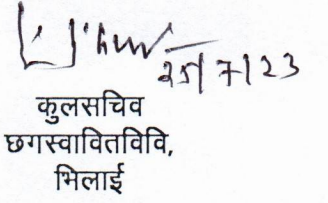 25/7/23
कुलसचिव
छगस्वावितविवि,
भिलाई